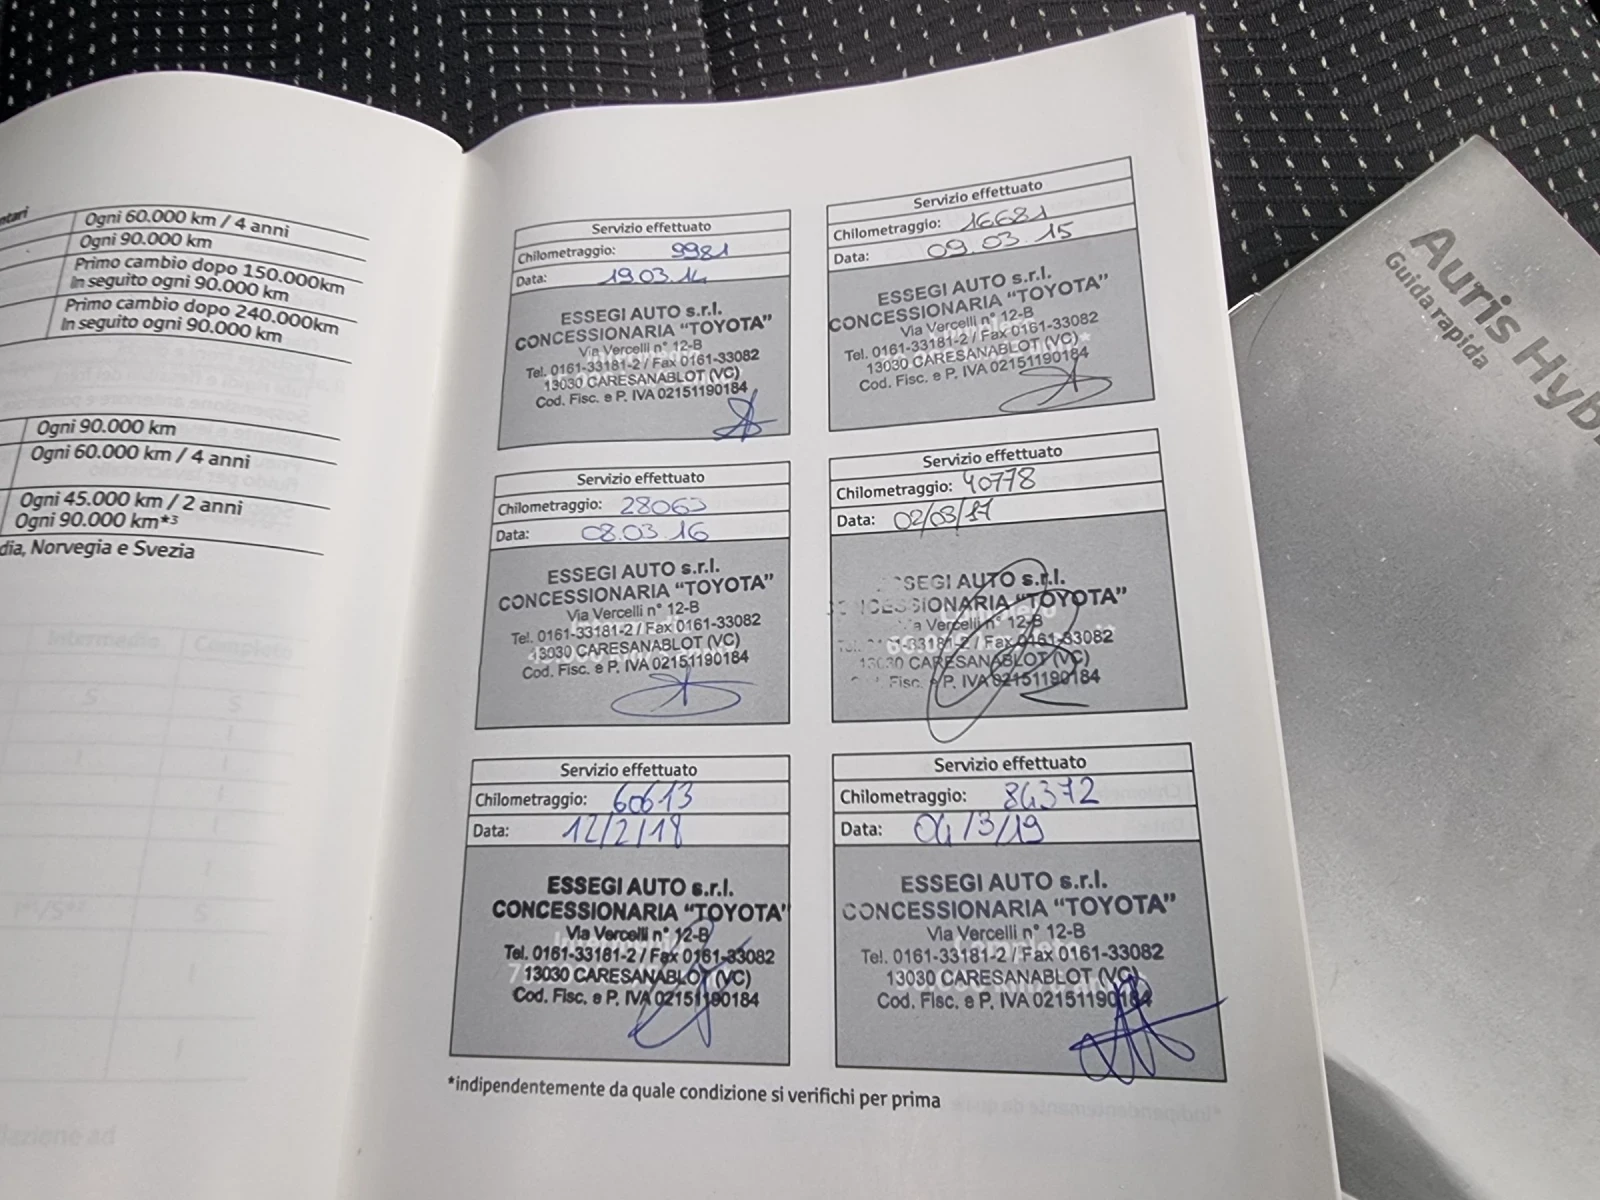 Ogni 60.000 km / 4 anni
Ogni 90.000 km
Primo cambio dopo 150.000km
In seguito ogni 90.000 km
Primo cambio dopo 240.000km
In seguito ogni 90.000 km
Ogni 90.000 km
Ogni 60.000 km / 4 anni
Ogni 45.000 km / 2 anni
Ogni 90.000 km*3
dia, Norvegia e Svezia
Servizio effettuato
Chilometraggio: 9981
Data: 19.03.14
ESSEGI AUTO s.r.l.
CONCESSIONARIA “TOYOTA”
Via Vercelli n° 12-B
Tel. 0161-33181-2 / Fax 0161-33082
13030 CARESANABLOT (VC)
Cod. Fisc. e P. IVA 02151190184
Servizio effettuato
Chilometraggio: 16681
Data: 09.03.15
ESSEGI AUTO s.r.l.
CONCESSIONARIA “TOYOTA”
Via Vercelli n° 12-B
Tel. 0161-33181-2 / Fax 0161-33082
13030 CARESANABLOT (VC)
Cod. Fisc. e P. IVA 02151190184
Servizio effettuato
Chilometraggio: 28063
Data: 08.03.16
ESSEGI AUTO s.r.l.
CONCESSIONARIA “TOYOTA”
Via Vercelli n° 12-B
Tel. 0161-33181-2 / Fax 0161-33082
13030 CARESANABLOT (VC)
Cod. Fisc. e P. IVA 02151190184
Servizio effettuato
Chilometraggio: 40778
Data: 02/03/17
SEGI AUTO s.r.l.
CESSIONARIA “TOYOTA”
a Vercelli n° 12-B
33181-2 / Fax 0161-33082
13030 CARESANABLOT (VC)
Fisc. e P. IVA 02151190184
Servizio effettuato
Chilometraggio: 60613
Data: 12/2/18
ESSEGI AUTO s.r.l.
CONCESSIONARIA “TOYOTA”
Via Vercelli n° 12-B
Tel. 0161-33181-2 / Fax 0161-33082
13030 CARESANABLOT (VC)
Cod. Fisc. e P. IVA 02151190184
Servizio effettuato
Chilometraggio: 84372
Data: 04/3/19
ESSEGI AUTO s.r.l.
CONCESSIONARIA “TOYOTA”
Via Vercelli n° 12-B
Tel. 0161-33181-2 / Fax 0161-33082
13030 CARESANABLOT (VC)
Cod. Fisc. e P. IVA 02151190184
*indipendentemente da quale condizione si verifichi per prima
Auris Hyb
Guida rapida